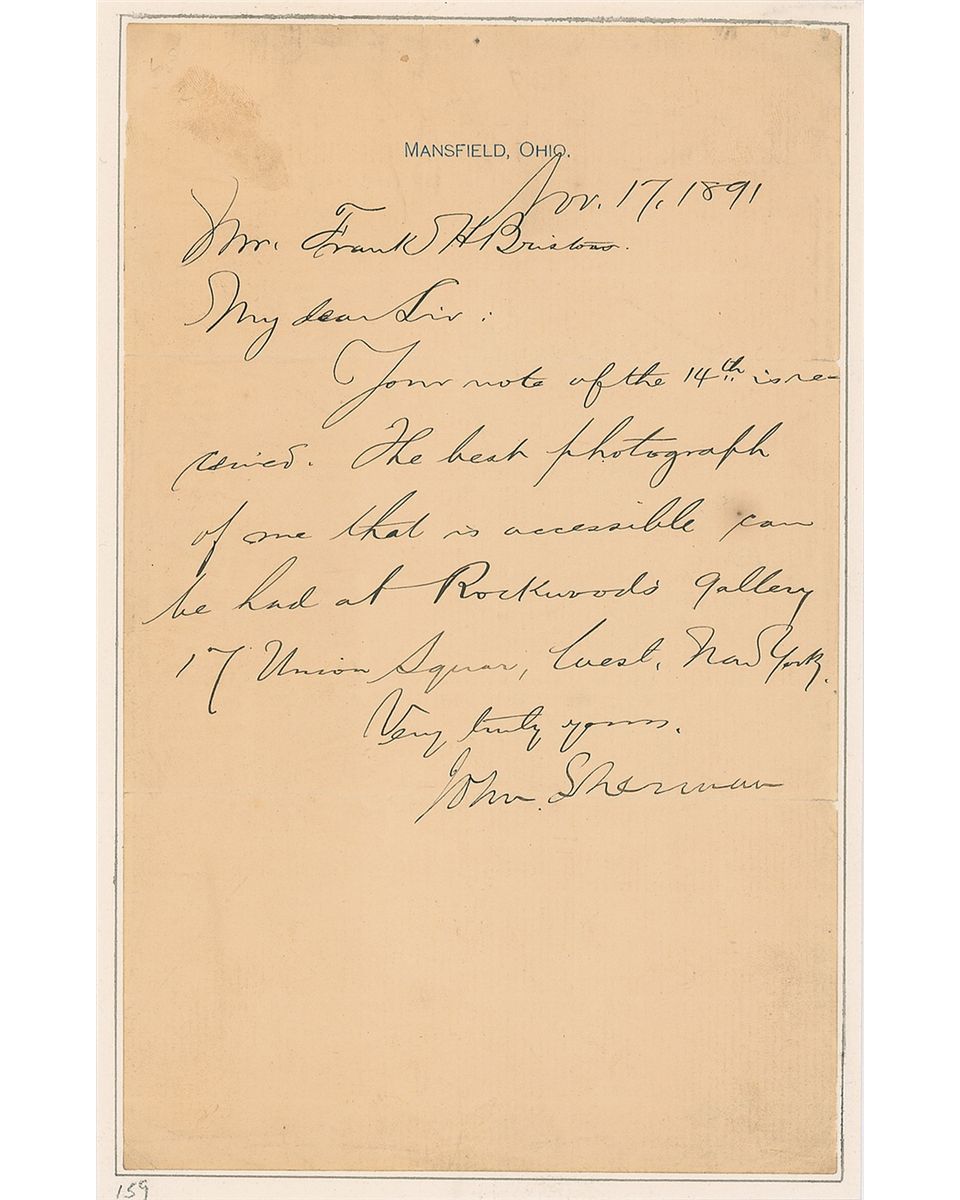 MANSFIELD, OHIO.
Nov. 17, 1891
Mr. Frank H Bristow.
My dear Sir:
Your note of the 14th. is re-
ceived. The best photograph
of me that is accessible can
be had at Rockwood's gallery
17 Union Square, West, New York.
Very truly yours.
John Sherman
159